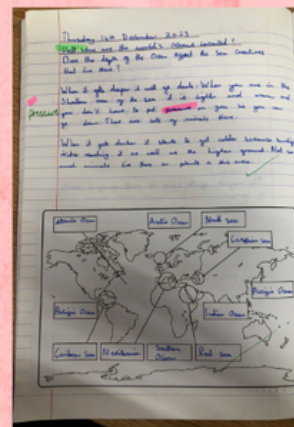 Thursday 14th December 2023
Hall: Where are the world's oceans located?
Does the depth of the Ocean affect the Sea Creatures
that live there?
When it gets deeper it will get darker. When you are in the
Shallow area of the sea it is lighter and warm, and
pressure
you don't have to put pressure on you so you can
go down. There are lots of animals there.
When it gets darker it starts to get colder because
reaching it as well as the higher ground. Not
and animals live there or plants in this area
Atlantic Ocean
Arctic Ocean
North Sea
Caspian Sea
Pacific Ocean
Pacific Ocean
Indian Ocean
Caribbean Sea
Mediterranean
Southern Ocean
Red Sea